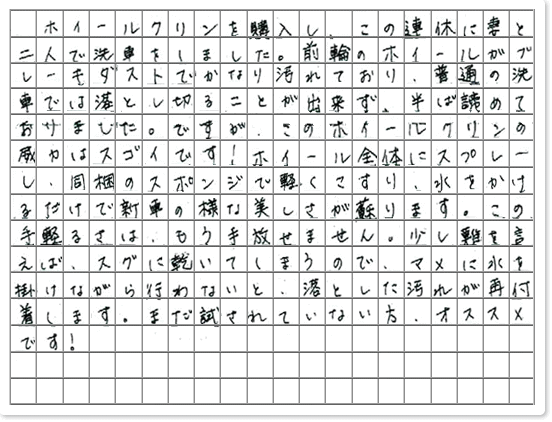 ホイールクリンを購入し、この連休に妻と
二人で洗車をしました。前輪のホイールがブ
レーキダストでかなり汚れており、普通の洗
車では落とし切ることが出来ず、半ば諦めて
おりました。ですが、このホイールクリンの
威力はスゴイです！ホイール全体にスプレー
し、同梱のスポンジで軽くこすり、水をかけ
るだけで新車の様な美しさが蘇ります。この
手軽るさは、もう手放せません。少し難を言
えば、スグに乾いてしまうので、マメに水を
掛けながら行わないと、落とした汚れが再付
着します。まだ試されていない方、オススメ
です！